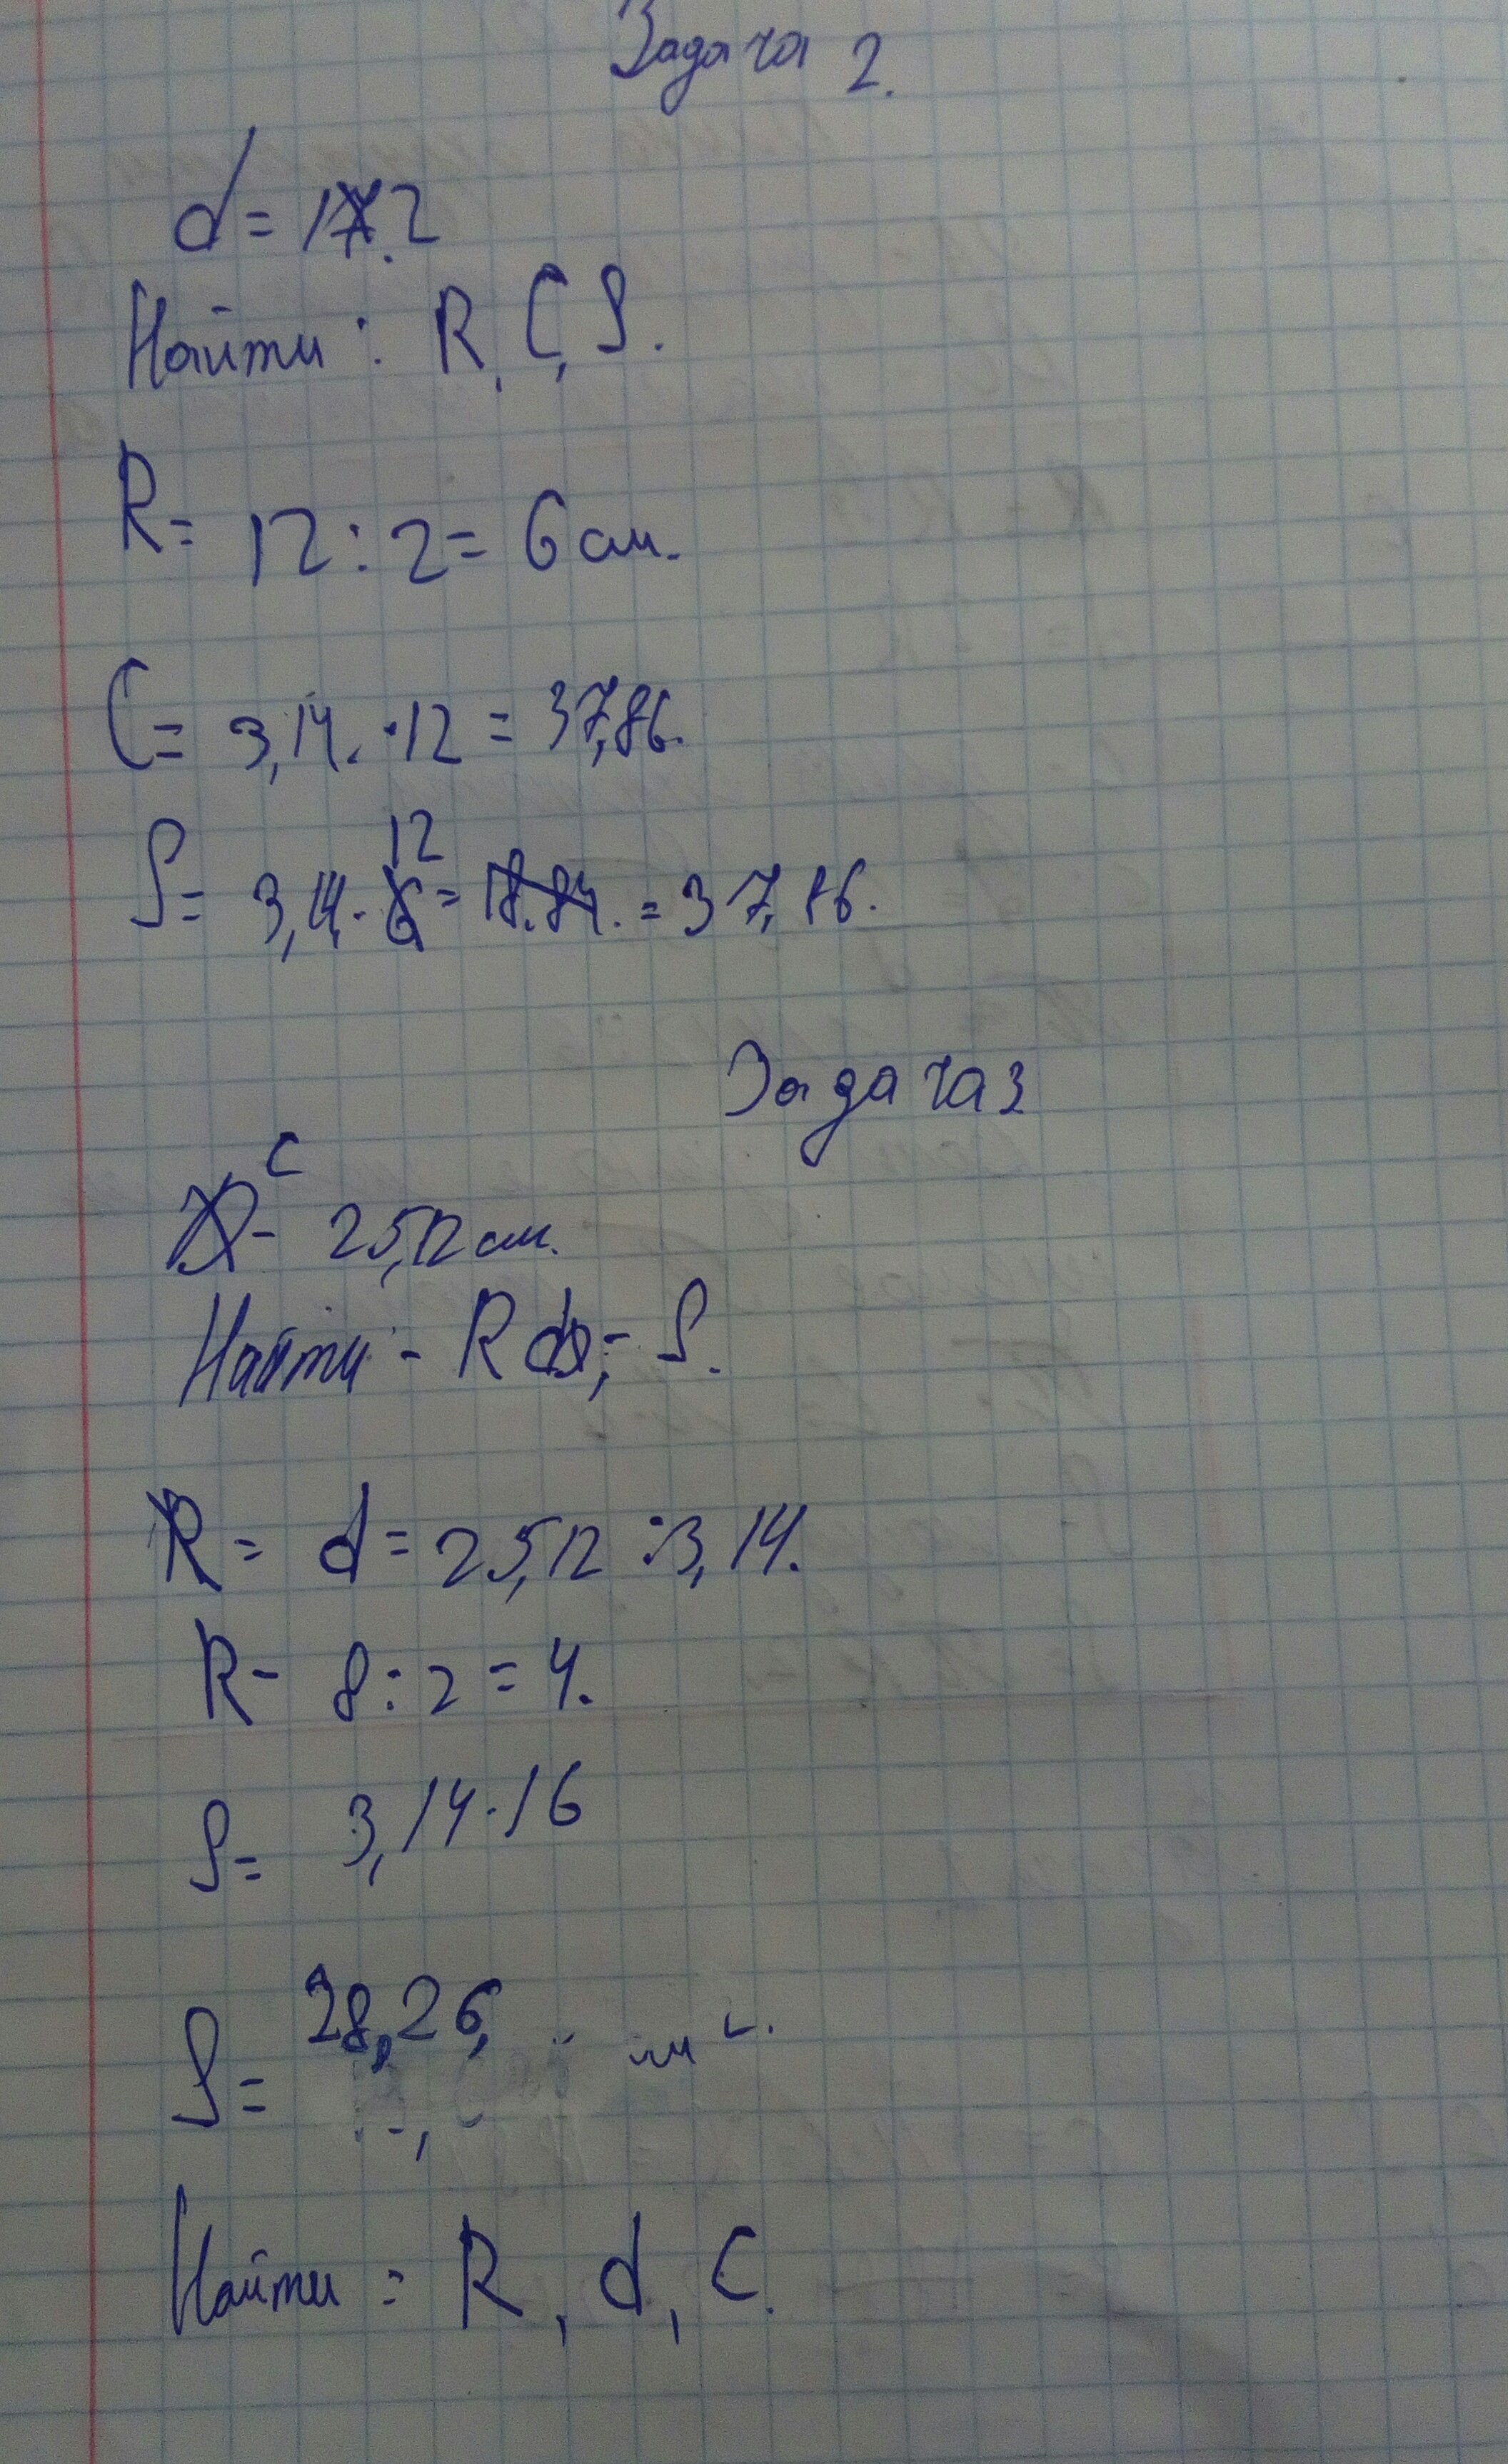 Задача 2.
d = 12
Найти: R, C, S.
R = 12 : 2 = 6 см.
C = 3,14 · 12 = 37,86.
12
S = 3,14 · 6 = 18.84. = 37,86.
Задача 3
C
- 25,12 см.
Найти - R d, - S.
R = d = 25,12 : 3,14.
R - 8 : 2 = 4.
S = 3,14 · 16
S = 28,26
Найти = R, d, C.